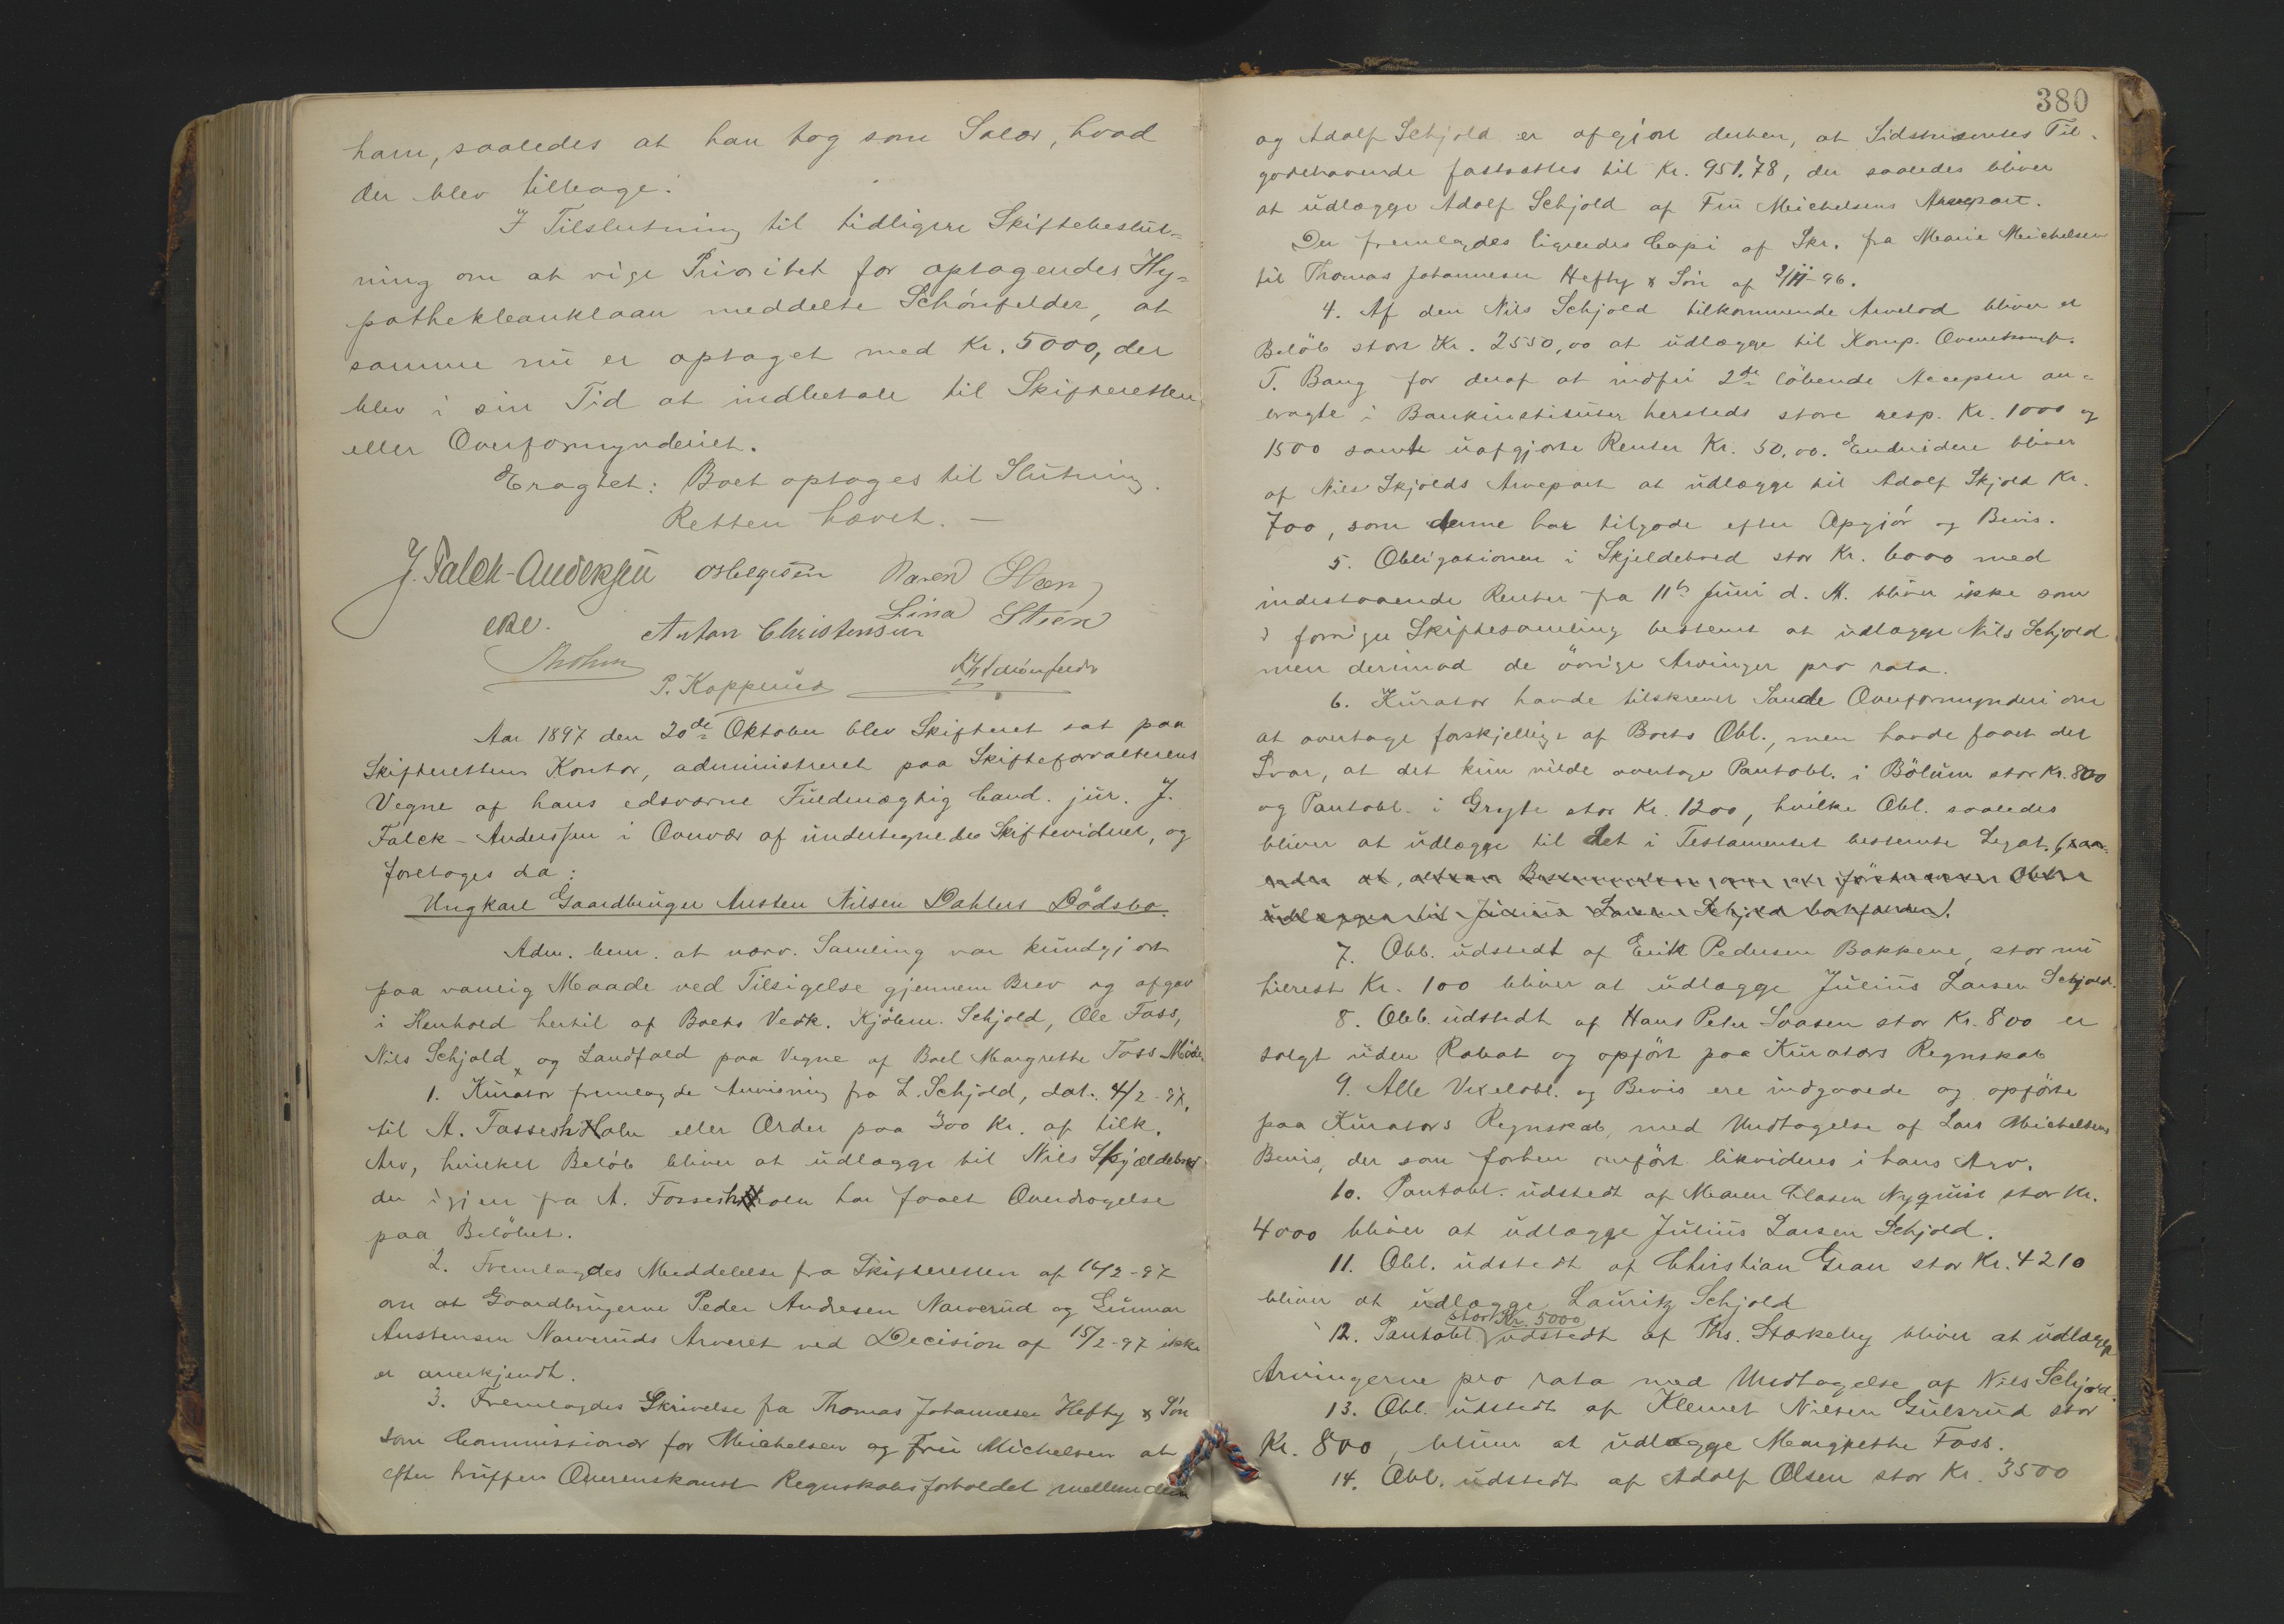 ham, saaledes at han tog som Salær, hvad
der blev tilbage.
I Tilslutning til tidligere Skiftebeslut=
ning om at vige Prioritet for optagendes Hy=
pothekbanklaan meddelte Schönfelder, at
samme nu er optaget med Kr. 5000, der
blev i sin Tid at indbetale til Skifteretten
eller Overformynderiet.
Eragtet: Boet optages til Slutning.
Retten hævet. —
J. Falck-Anderssen OsHelgesen Karen Steen
eRe. Anton Christensen Lina Steen
Thohm
P. Kopperud Schönfelder
Aar 1897 den 20de Oktober blev Skifteret sat paa
Skifterettens Kontor, administreret paa Skifteforvalterens
Vegne af hans edsvorne Fuldmægtig Cand. jur. J.
Falck-Anderssen i Overvær af undertegnedes Skiftevidner, og
foretoges da:
Ungkarl Gaardbruger Austen Nilsen Dahlers Dödsbo.
Adm. bem. at nærv. Samling var kundgjort
paa vanlig Maade ved Tilsigelse gjennem Brev og afgav
i Henhold hertil af Boets Vedk. Kjöbm. Schjold, Ole Foss,
Nils Schjold, og Landfald paa Vegne af Boel Margrethe Foss Möde
1. Kurator fremlagde Anvisning fra L. Schjold, dat. 4/2-97,
til A. Fossesholm eller Order paa 300 Kr. af tilk.
Arv, hvilket Beløb bliver at udlægge til Nils Skjældebred
der igjen fra A. Fossesholm har faaet Overdragelse
paa Beløbet.
2. Fremlagdes Meddelelse fra Skifteretten af 16/2-97
om at Gaardbrugerne Peder Andresen Narverud og Gunnar
Austensen Narveruds Arveret ved Decision af 15/2-97 ikke
er anerkjendt.
3. Fremlagdes Skrivelse fra Thomas Johannesen Hefty & Sön
som Commissionær for Michelsen og Fru Michelsen at
efter truffen Overenskomst Regnskabsforholdet mellem dem
380
og Adolf Schjold er afgjort derhen, at Sidstnævntes Til-
godehavende fastsættes til Kr. 951.78, der saaledes bliver
at udlægge Adolf Schjold af Fru Meichelsens Arvepart.
Der fremlagdes ligeledes Copi af Skr. fra Marie Meichelsen
til Thomas Johannesen Hefty & Sön af 3/11-96.
4. Af den Nils Schjold tilkommende Arvelod bliver et
Belöb stort Kr. 2550,00 at udlægge til Komp.
T. Bang for deraf at indfri 2de löbende Accepter an=
bragte i Bankinstituter hersteds store resp. Kr. 1000 og
1500 samt uafgjorte Renter Kr. 50,00. Endvidere bliver
af Nils Skjolds Arvepart at udlægge til Adolf Skjold Kr.
700, som denne har tilgode efter Opgjör og Bevis.
5. Obligationen i Skjeldebred stor Kr. 6000 med
indestaaende Renter fra 11te Juni d. A. bliver ikke som
i forrige Skiftesamling bestemt at udlægge Nils Schjold
men derimod de övrige Arvinger pro rata.
6. Kurator havde tilskrevet Sande Overformynderi om
at overtage forskjellige af Boets Obl., men havde faaet det
Svar, at det kun vilde overtage Pantobl. i Bölum stor Kr. 800
og Pantobl. i Gryte stor Kr. 1200, hvilke Obl. saaledes
bliver at udlægge til det i Testamentet bestemte Legat, (saa-
ledes at, altsaa Bestemmelsen om at förstnævnte Obl.
udlægges til Julius Larsen Schjold bortfalder).
7. Obl. udstedt af Erik Pedersen Bakkene, stor nu
tilrest Kr. 100 bliver at udlægge Julius Larsen Schjold.
8. Obl. udstedt af Hans Peter Svasen stor Kr. 800 er
solgt uden Rabat og opfört paa Kurators Regnskab
9. Alle Vexelobl. og Bevis ere indgaaede og opförte
paa Kurators Regnskab, med Undtagelse af Lars Michelsens
Bevis, der som forhen anfört likvideres i hans Arv.
10. Pantobl. udstedt af Maren Clasen Nyquist stor Kr.
4000 bliver at udlægge Julius Larsen Schjold.
11. Obl. udstedt af Christian Gran stor Kr. 4210
bliver at udlægge Lauritz Schjold
stor Kr. 5000
12. Pantobl. udstedt af Ths. Stokeby bliver at udlægge
Arvingerne pro rata med Undtagelse af Nils Schjold.
13. Obl. udstedt af Klemet Nilsen Gulsrud stor
Kr. 800, bliver at udlægge Margrethe Foss.
14. Obl. udstedt af Adolf Olsen stor Kr. 3500